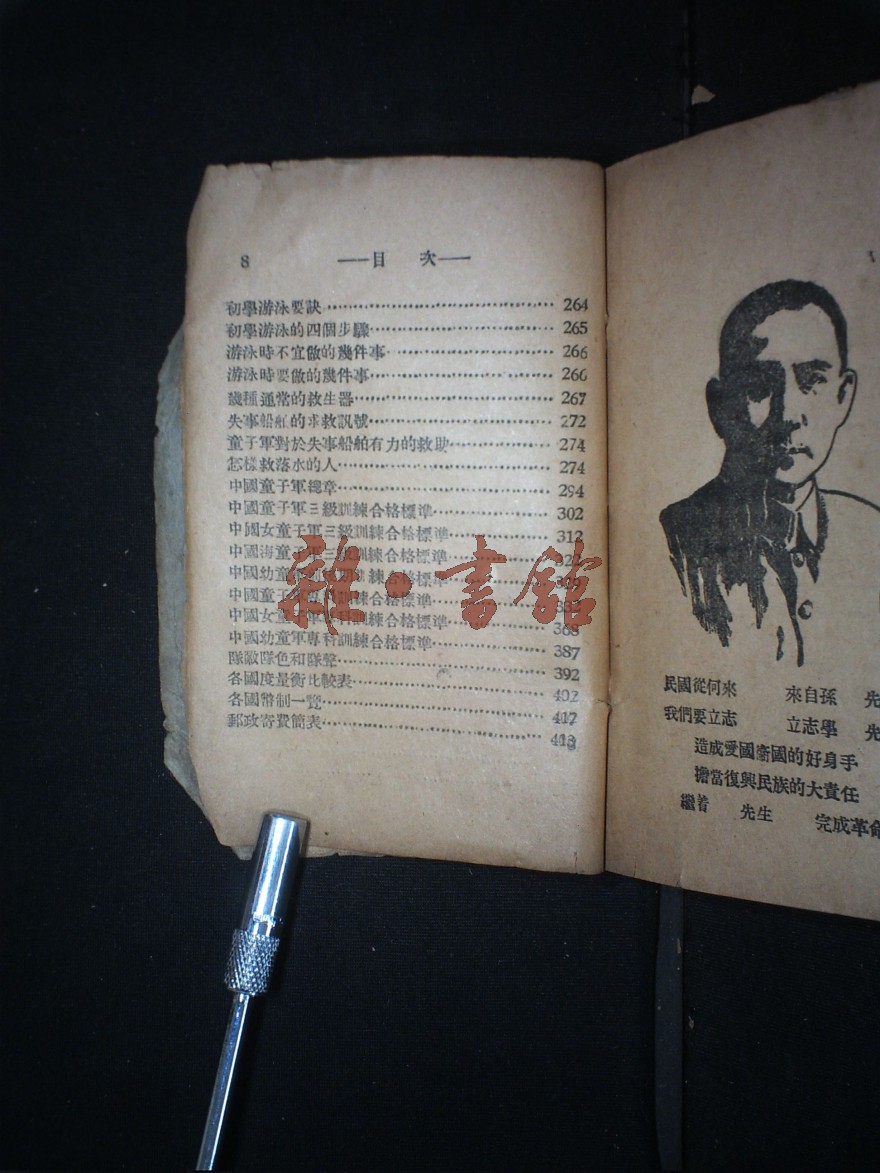 8 ——目 次——
初學游泳要訣 264
初學游泳的四個步驟 265
游泳時不宜做的幾件事 266
游泳時要做的幾件事 266
幾種通常的救生器 267
失事船舶的求救訊號 272
童子軍對於失事船舶有力的救助 274
怎樣救落水的人 274
中國童子軍總章 294
中國童子軍三級訓練合格標準 302
中國女童子軍三級訓練合格標準 312
中國海童子軍三級訓練合格標準
中國幼童軍 訓練合格標準
中國童子軍專科訓練合格標準
中國女童子軍專科訓練合格標準 368
中國幼童軍專科訓練合格標準 387
隊敵隊色和隊聲 392
各國度量衡比較表 402
各國幣制一覽 417
郵政寄費簡表 418
雜·書館
民國從何來 來自孫 先
我們要立志 立志學 先
造成愛國衞國的好身手
擔當復興民族的大責任
繼着 先生 完成革命